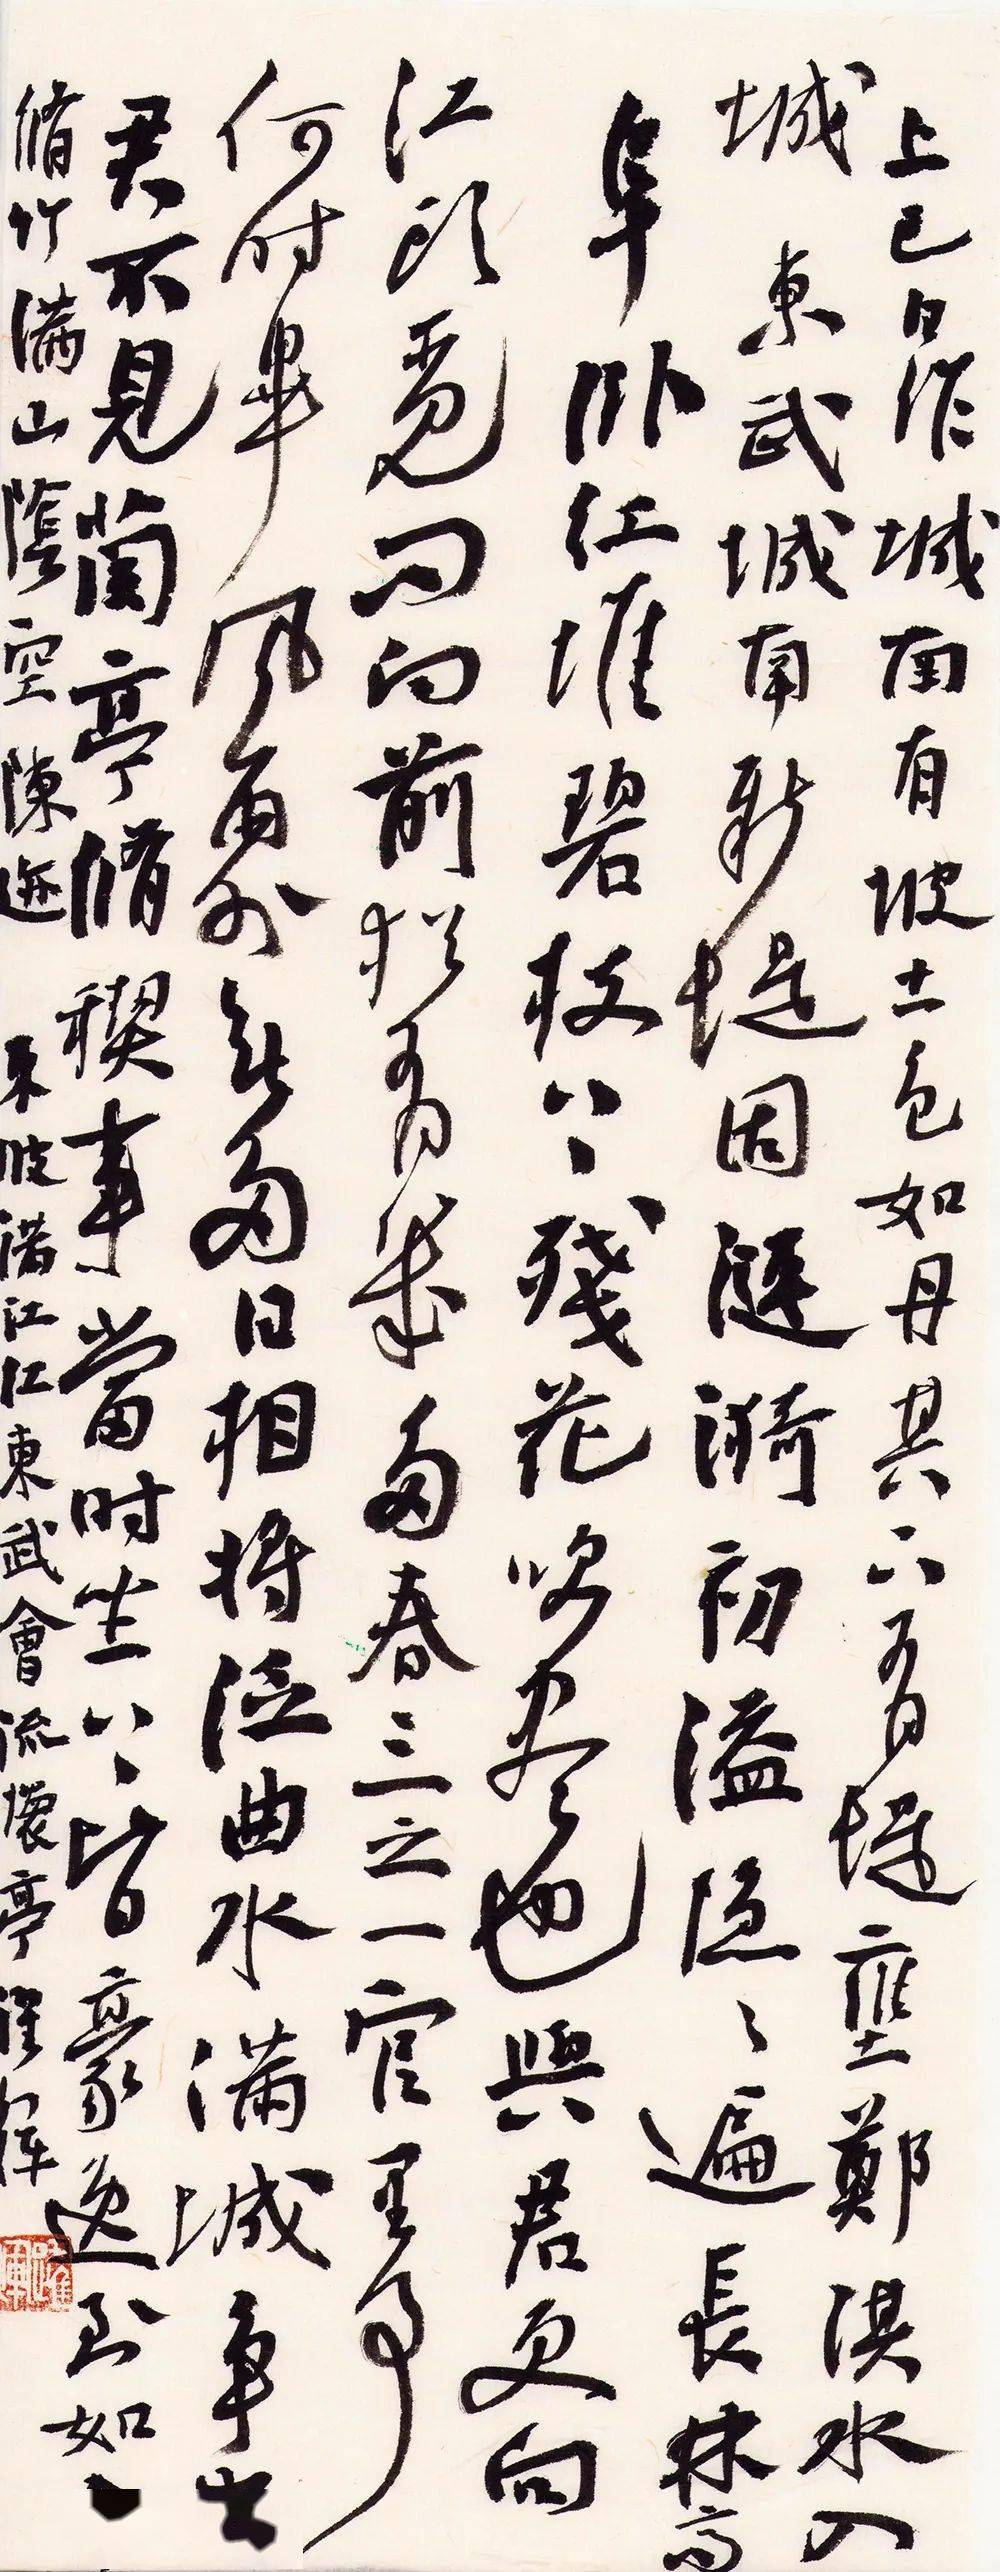 上巳日作城南有坡土色如丹其下有堤壅鄭淇水入
城 東武城南新堤因漣漪初溢隱々遍長林高
阜卧紅堆碧枝上殘花吹盡也與君更向
江頭覓问向前猶有幾多春三之一官里事
何时畢風雨外無多日相將泛曲水滿城争出
君不見蘭亭脩禊事當时坐上皆豪逸到如
脩竹滿山陰空陳迹 東坡满江红東武會流懷亭